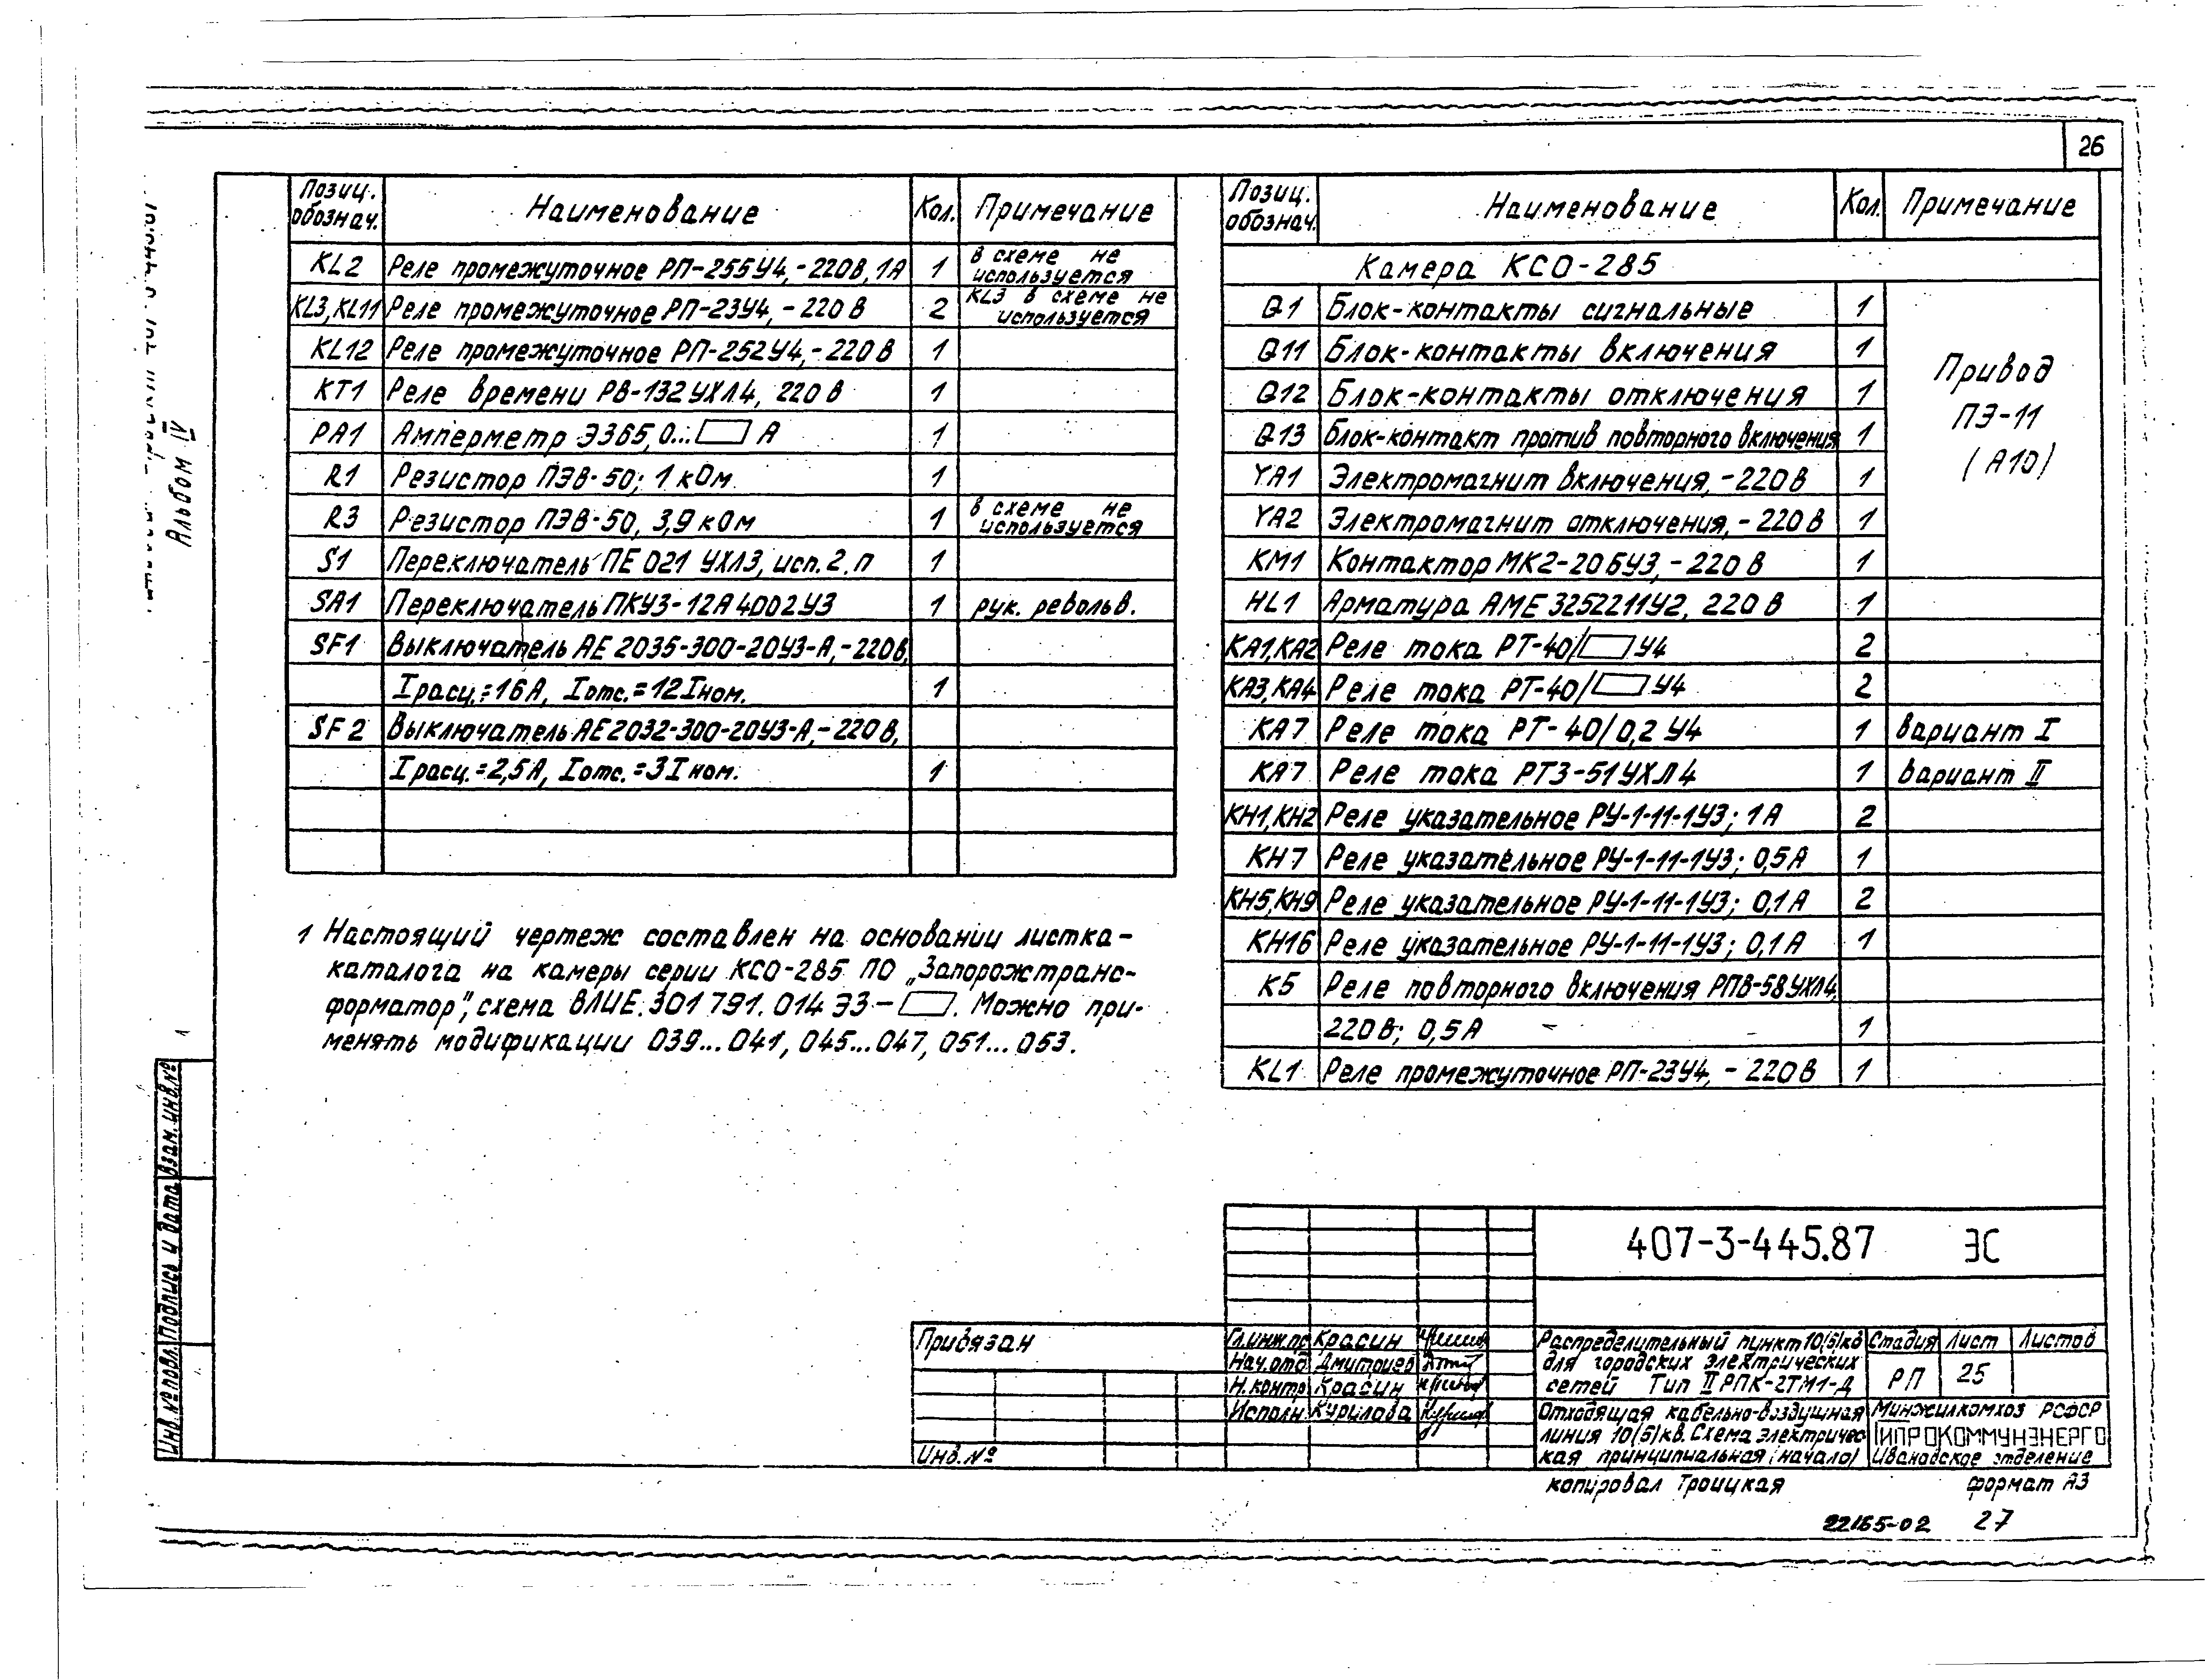 26
Позиц. обознач. Наименование Кол. Примечание
KL2 Реле промежуточное РП-255У4,-220В, 1А 1 в схеме не используется
KL3, KL11 Реле промежуточное РП-23У4, -220 В 2 KL3 в схеме не используется
KL12 Реле промежуточное РП-252У4,-220 В 1
KT1 Реле времени РВ-132УХЛ4, 220 В 1
PA1 Амперметр Э365, 0... А 1
R1 Резистор ПЭВ-50; 1 кОм 1
R3 Резистор ПЭВ-50, 3,9 кОм 1 в схеме не используется
S1 Переключатель ПЕ 021 УХЛ3, исп. 2. п 1
SA1 Переключатель ПКУ3-12А4002У3 1 рук. револьв.
SF1 Выключатель АЕ 2035-300-20У3-А,-220В,
Iрасц.=16А, Iотс.=12Iном. 1
SF2 Выключатель АЕ2032-300-20У3-А,-220В,
Iрасц.=2,5А, Iотс.=3Iном. 1
1 Настоящий чертеж составлен на основании листка-
каталога на камеры серии КСО-285 ПО „Запорожтранс-
форматор", схема ВЛИЕ.301791.014 Э3- . Можно при-
менять модификации 039...041, 045...047, 051...053.
Позиц. обознач. Наименование Кол. Примечание
Камера КСО-285
Q1 Блок-контакты сигнальные 1
Q11 Блок-контакты включения 1
Q12 Блок-контакты отключения 1
Q13 Блок-контакт против повторного включения 1
YA1 Электромагнит включения,-220В 1
YA2 Электромагнит отключения,-220В 1
KM1 Контактор МК2-20БУ3,-220 В 1
Привод
ПЭ-11
(А10)
HL1 Арматура АМЕ3252211У2, 220 В 1
KA1,KA2 Реле тока РТ-40/ У4 2
KA3,KA4 Реле тока РТ-40/ У4 2
KA7 Реле тока РТ-40/0,2 У4 1 Вариант I
KA7 Реле тока РТЗ-51УХЛ4 1 Вариант II
KH1,KH2 Реле указательное РУ-1-11-1У3; 1А 2
KH7 Реле указательное РУ-1-11-1У3; 0,5А 1
KH5,KH9 Реле указательное РУ-1-11-1У3; 0,1А 2
KH16 Реле указательное РУ-1-11-1У3; 0,1А 1
K5 Реле повторного включения РПВ-58УХЛ4,
220 В; 0,5А 1
KL1 Реле промежуточное РП-23У4, -220В 1
Альбом IV
Инв.№ подл. Подпись и дата Взам. инв.№
407-3-445.87 ЭС
Привязан
Инв.№
Гл.инж.пр Красин
Нач.отд Дмитриев
Н.контр Красин
Исполн. Курилова
Распределительный пункт 10(6)кВ
для городских электрических
сетей Тип II РПК-2ТМ1-Д
Стадия Лист Листов
РП 25
Отходящая кабельно-воздушная
линия 10(6)кВ. Схема электричес
кая принципиальная (начало)
Минжилкомхоз РСФСР
ГИПРОКОММУНЭНЕРГО
Ивановское отделение
копировал Троицкая формат А3
22165-02 27